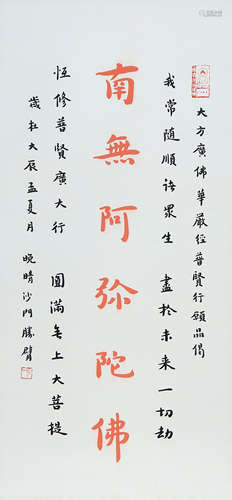 大方廣佛華嚴経普賢行願品偈
我常随順諸眾生 盡於未来一切劫
南無阿弥陀佛
恆修普賢廣大行 圓滿無上大菩提
歲在大辰孟夏月 晚晴沙門勝臂